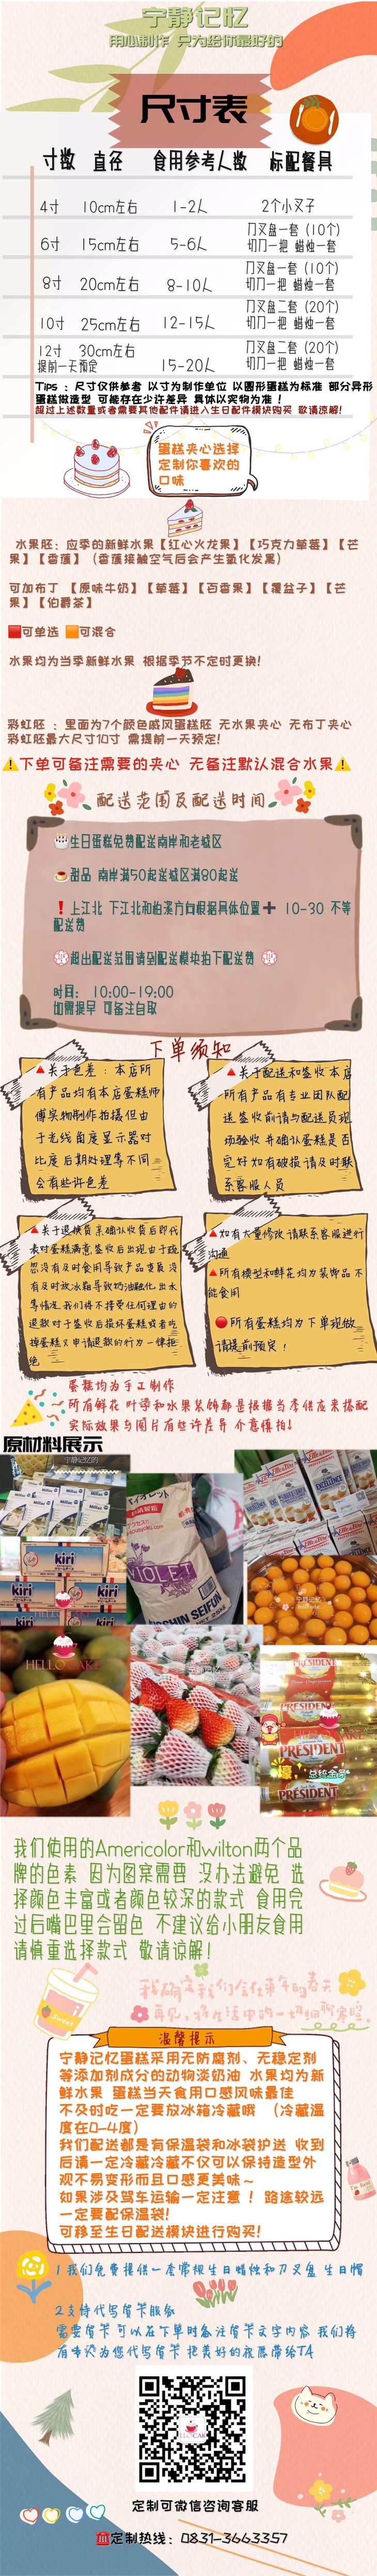 宁静记忆
用心制作 只为给你最好的
尺寸表
寸数 直径 食用参考人数 标配餐具
4寸 10cm左右 1-2人 2个小叉子
6寸 15cm左右 5-6人 刀叉盘一套（10个）
切刀一把 蜡烛一套
8寸 20cm左右 8-10人 刀叉盘一套（10个）
切刀一把 蜡烛一套
10寸 25cm左右 12-15人 刀叉盘二套（20个）
切刀一把 蜡烛一套
12寸 30cm左右 15-20人 刀叉盘二套（20个）
提前一天预定 切刀一把 蜡烛一套
Tips ：尺寸仅供参考 以寸为制作单位 以圆形蛋糕为标准 部分异形
蛋糕做造型 可能存在少许差异 具体以实物为准！
超过上述数量或者需要其他配件请进入生日配件模块购买 敬请谅解！
蛋糕夹心选择
定制你喜欢的
口味
水果胚：应季的新鲜水果【红心火龙果】【巧克力草莓】【芒
果】【香蕉】（香蕉接触空气后会产生氧化发黑）
可加布丁 【原味牛奶】【草莓】【百香果】【覆盆子】【芒
果】【伯爵茶】
可单选 可混合
水果均为当季新鲜水果 根据季节不定时更换！
彩虹胚 ：里面为7个颜色戚风蛋糕胚 无水果夹心 无布丁夹心
彩虹胚最大尺寸10寸 需提前一天预定！
下单可备注需要的夹心 无备注默认混合水果
配送范围及配送时间
生日蛋糕免费配送南岸和老城区
甜品 南岸满50起送城区满80起送
上江北 下江北和柏溪方向根据具体位置➕ 10-30 不等
配送费
超出配送范围请到配送模块拍下配送费
时间： 10:00-19:00
如需提早 可备注自取
下单须知
关于色差：本店所
有产品均有本店蛋糕师
傅实物制作拍摄但由
于光线角度显示器对
比度后期处理等不同
会有些许色差
关于配送和签收本店
所有产品有专业团队配
送签收前请与配送员现
场验收并确认蛋糕是否
完好如有破损请及时联
系客服人员
关于退换货亲确认收货后即代
表对蛋糕满意签收后出现由于疏
忽没有及时食用导致产品变质没
有及时放冰箱导致奶油融化出水
等情况我们将不接受任何理由的
退款对于签收后损坏蛋糕或者吃
掉蛋糕又申请退款的行为一律拒
绝
如有大量修改请联系客服进行
沟通
所有模型和鲜花均为装饰品不
能食用
所有蛋糕均为下单现做
请提前预定！
蛋糕均为手工制作
所有鲜花 叶子和水果装饰都是根据当季供应来搭配
实际效果与图片有些许差异 介意慎拍！
原材料展示
宁静记忆的
Millac
kiri
kiri
HELLO CAKE
VIOLET
NISSHIN SEIFUN
Elle&Vire
EXCELLENCE
宁静记忆
HELLO CAKE
PRESIDENT
PRESIDENT
PRESIDENT
壕
总统金条
PRÉSIDENT
我们使用的Americolor和wilton两个品
牌的色素 因为图案需要 没办法避免 选
择颜色丰富或者颜色较深的款式 食用完
过后嘴巴里会留色 不建议给小朋友食用
请慎重选择款式 敬请谅解！
我确定我们会在来年的春天
再见
Sweet
温馨提示
宁静记忆蛋糕采用无防腐剂、无稳定剂
等添加剂成分的动物淡奶油 水果均为新
鲜水果 蛋糕当天食用口感风味最佳
不及时吃一定要放冰箱冷藏哦 （冷藏温
度在0-4度）
我们配送都是有保温袋和冰袋护送 收到
后请一定冷藏冷藏不仅可以保持造型外
观不易变形而且口感更美味～
如果涉及驾车运输一定注意 ！路途较远
一定要配保温袋！
可移至生日配送模块进行购买！
1 我们免费提供一套常规生日蜡烛和刀叉盘 生日帽
2 支持代写贺卡服务
需要贺卡 可以在下单时备注贺卡文字内容 我们将
为您代写贺卡 把美好的祝愿带给TA
定制可微信咨询客服
定制热线：0831-3663357